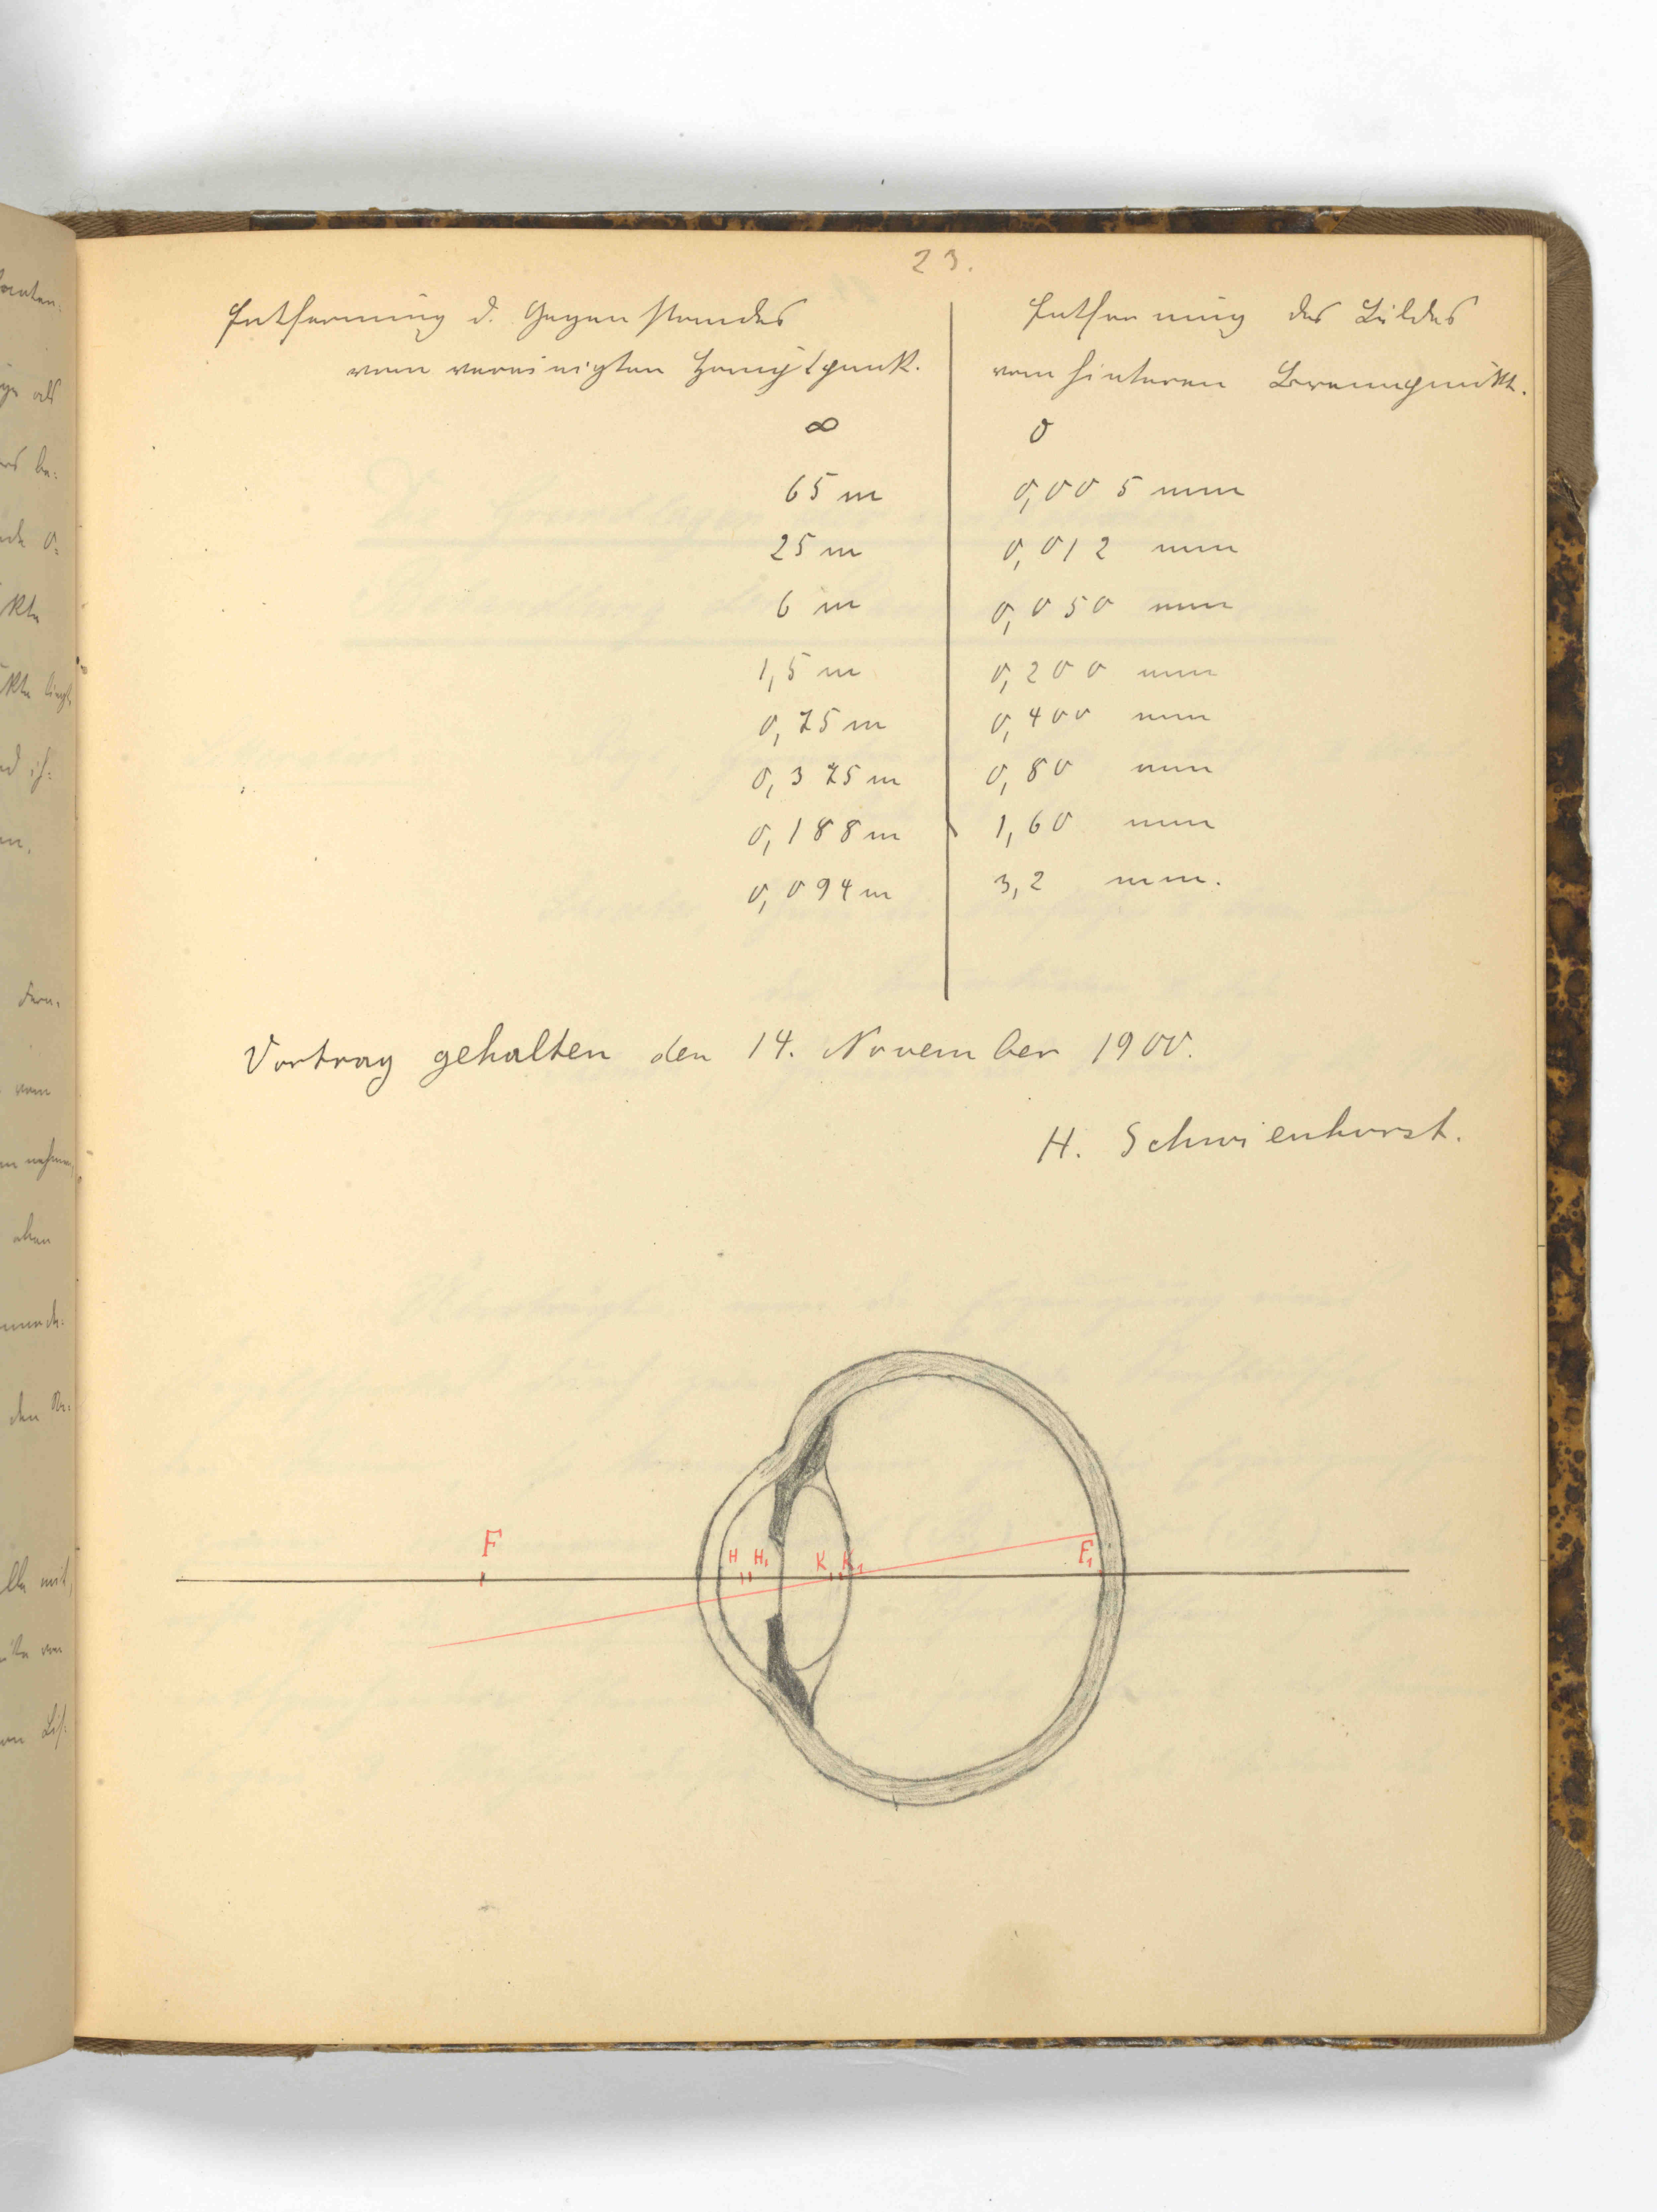 23.
Entfernung d. Gegenstandes
vom vereinigten Hauptpunk.
Entfernung des Bildes
vom hinteren Brennpunkt.
∞ 0
65 m 0,005 mm
25 m 0,012 mm
6 m 0,050 mm
1,5 m 0,200 mm
0,75 m 0,400 mm
0,375 m 0,80 mm
0,188 m 1,60 mm
0,094 m 3,2 mm.
Vortrag gehalten den 14. November 1900.
H. Schwienhorst.
F H H₁ K K₁ F₁